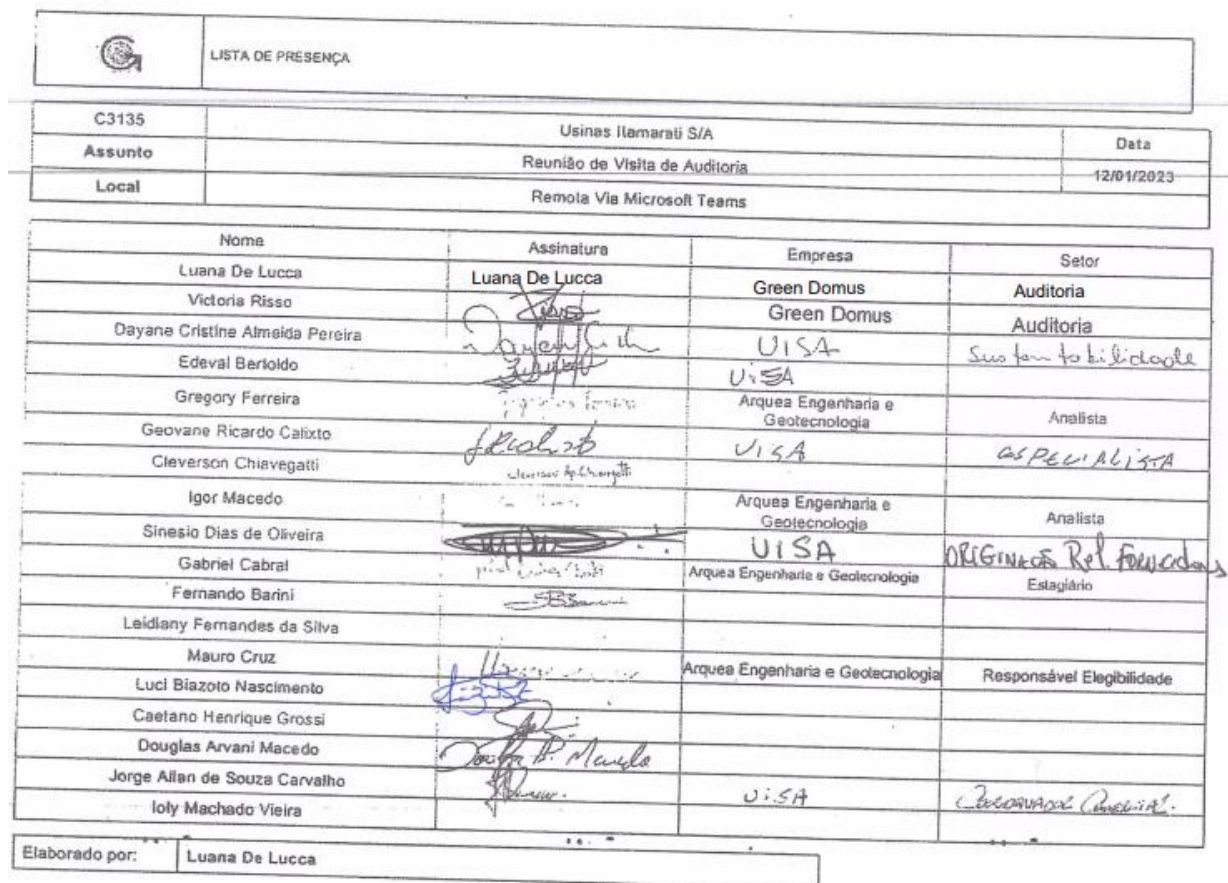 LISTA DE PRESENÇA
C3135 Usinas Itamarati S/A Data
Assunto Reunião de Visita de Auditoria 12/01/2023
Local Remota Via Microsoft Teams
Nome Assinatura Empresa Setor
Luana De Lucca Luana De Lucca Green Domus Auditoria
Victoria Risso Green Domus Auditoria
Dayane Cristine Almeida Pereira UISA Sustentabilidade
Edeval Bertoldo UISA
Gregory Ferreira Arquea Engenharia e Geotecnologia Analista
Geovane Ricardo Calixto UISA ESPECIALISTA
Cleverson Chiavegatti
Igor Macedo Arquea Engenharia e Geotecnologia Analista
Sinesio Dias de Oliveira UISA Rel.
Gabriel Cabral Arquea Engenharia e Geotecnologia Estagiário
Fernando Barini
Leidiany Fernandes da Silva
Mauro Cruz Arquea Engenharia e Geotecnologia Responsável Elegibilidade
Luci Biazoto Nascimento
Caetano Henrique Grossi
Douglas Arvani Macedo
Jorge Allan de Souza Carvalho UISA
Ioly Machado Vieira
Elaborado por: Luana De Lucca